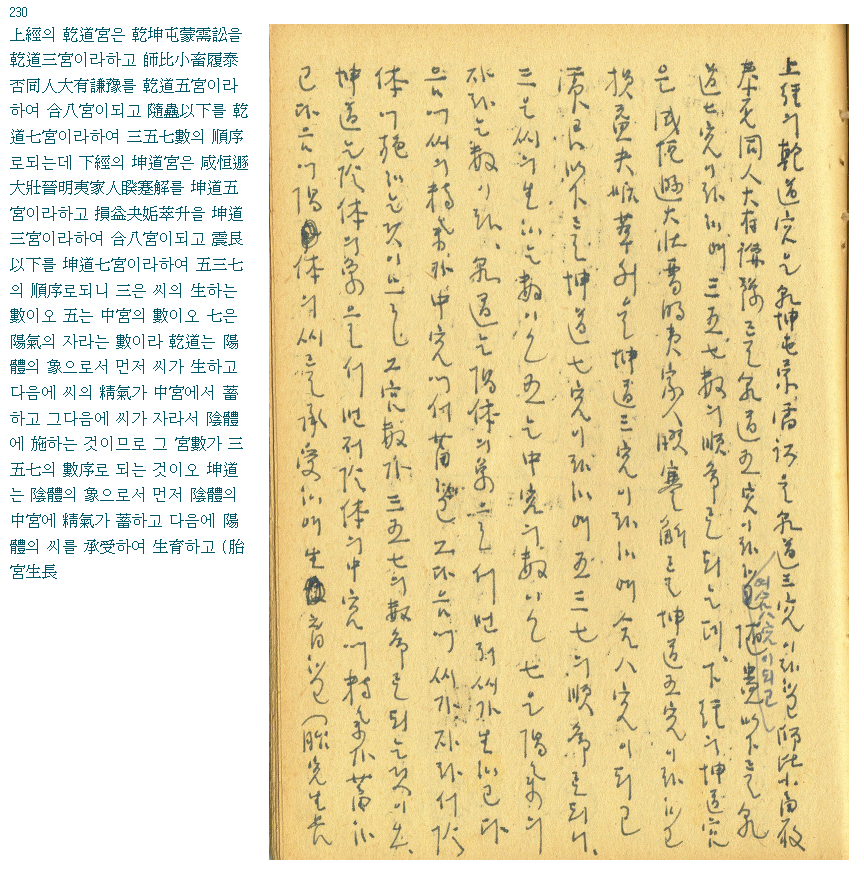 230
上經의 乾道宮은 乾坤屯蒙需訟을
乾道三宮이라하고 師比小畜履泰
否同人大有謙豫를 乾道五宮이라
하여 合八宮이되고 隨蠱以下를 乾
道七宮이라하여 三五七數의 順序
로되는데 下經의 坤道宮은 咸恒遯
大壯晉明夷家人睽蹇解를 坤道五
宮이라하고 損益夬姤萃升을 坤道
三宮이라하여 合八宮이되고 震艮
以下를 坤道七宮이라하여 五三七
의 順序로되니 三은 씨의 生하는
數이오 五는 中宮의 數이오 七은
陽氣의 자라는 數이라 乾道는 陽
體의 象으로서 먼저 씨가 生하고
다음에 씨의 精氣가 中宮에서 蓄
하고 그다음에 씨가 자라서 陰體
에 施하는 것이므로 그 宮數가 三
五七의 數序로 되는 것이오 坤道
는 陰體의 象으로서 먼저 陰體의
中宮에 精氣가 蓄하고 다음에 陽
體의 씨를 承受하여 生育하고 (胎
宮生長
上經의 乾道宮은 乾坤屯蒙需訟은 乾道三宮이라하고 師比小畜履
泰否同人大有謙豫를 乾道五宮이라하여 合八宮이되고 隨蠱以下를 乾
道七宮이라하여 三五七數의 順序로 되는데 下經의 坤道宮
은 咸恒遯大壯晉明夷家人睽蹇解를 坤道五宮이라하고
損益夬姤萃升을 坤道三宮이라하여 合八宮이되고
震艮以下를 坤道七宮이라하여 五三七의 順序로되니、
三은 씨의 生하는 數이오 五는 中宮의 數이오 七은 陽氣의
자라는 數이라、乾道는 陽体의 象으로서 먼저 씨가 生하고 다
음에 씨의 精氣가 中宮에서 蓄하고 그다음에 씨가 자라서 陰
体에 施하는 것이므로 그 宮數가 三五七의 數序로 되는것이오、
坤道는 陰体의 象으로서 먼저 陰体의 中宮에 精氣가 蓄하
고 다음에 陽体의 씨를 承受하여 生育하고 (胎宮生長